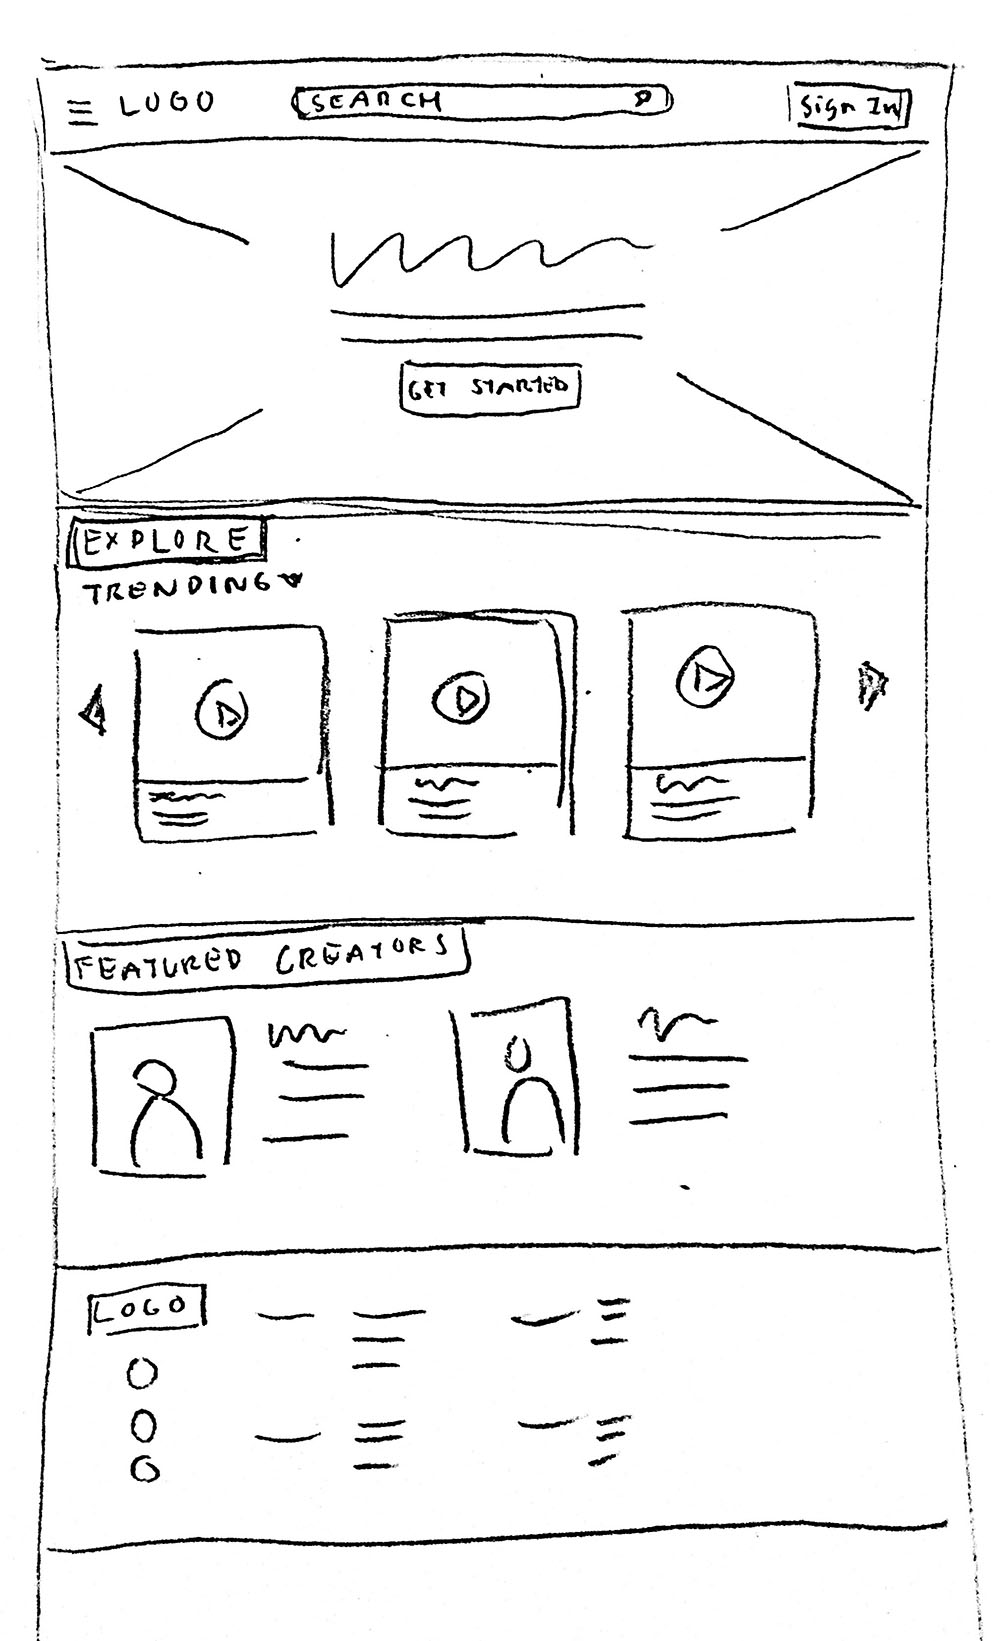 LOGO SEARCH Sign In
GET STARTED
EXPLORE
TRENDING
FEATURED CREATORS
LOGO